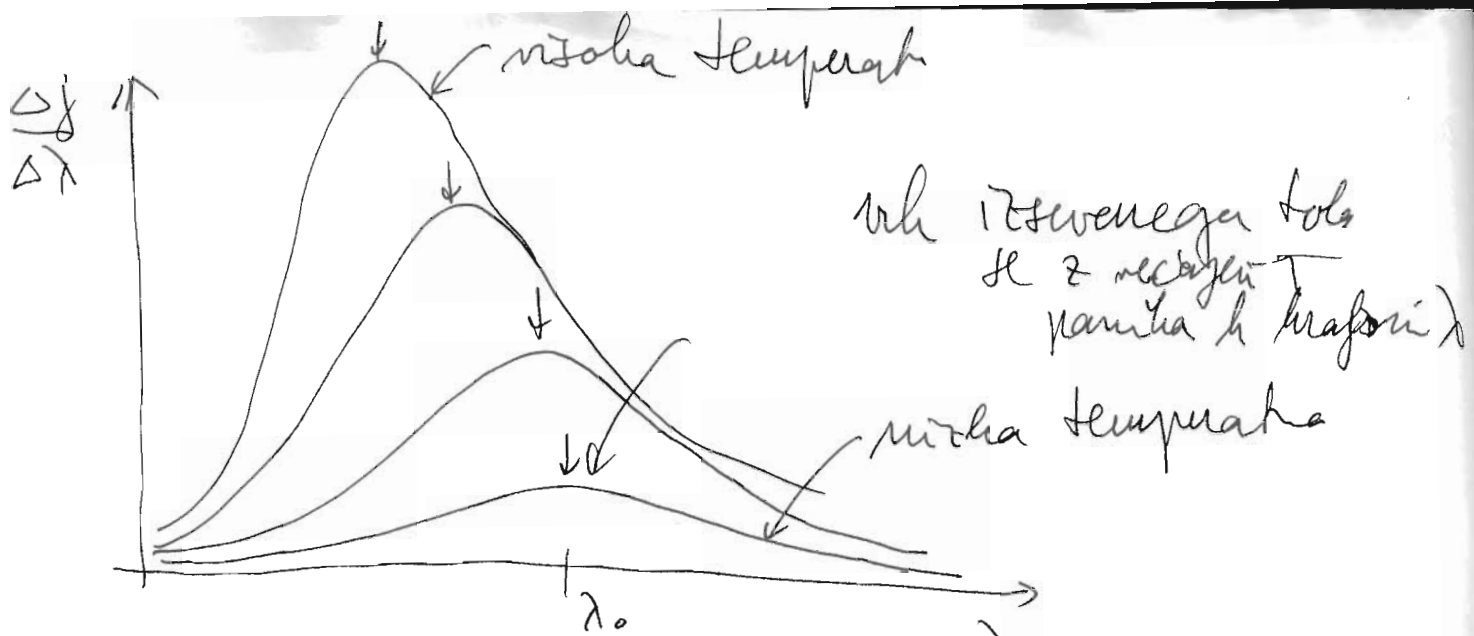 visoka temperat
Δj
Δλ
vrh izsevanega toka
se z večanjem T
pomika k krajšim λ
nizka temperatura
λ₀
λ